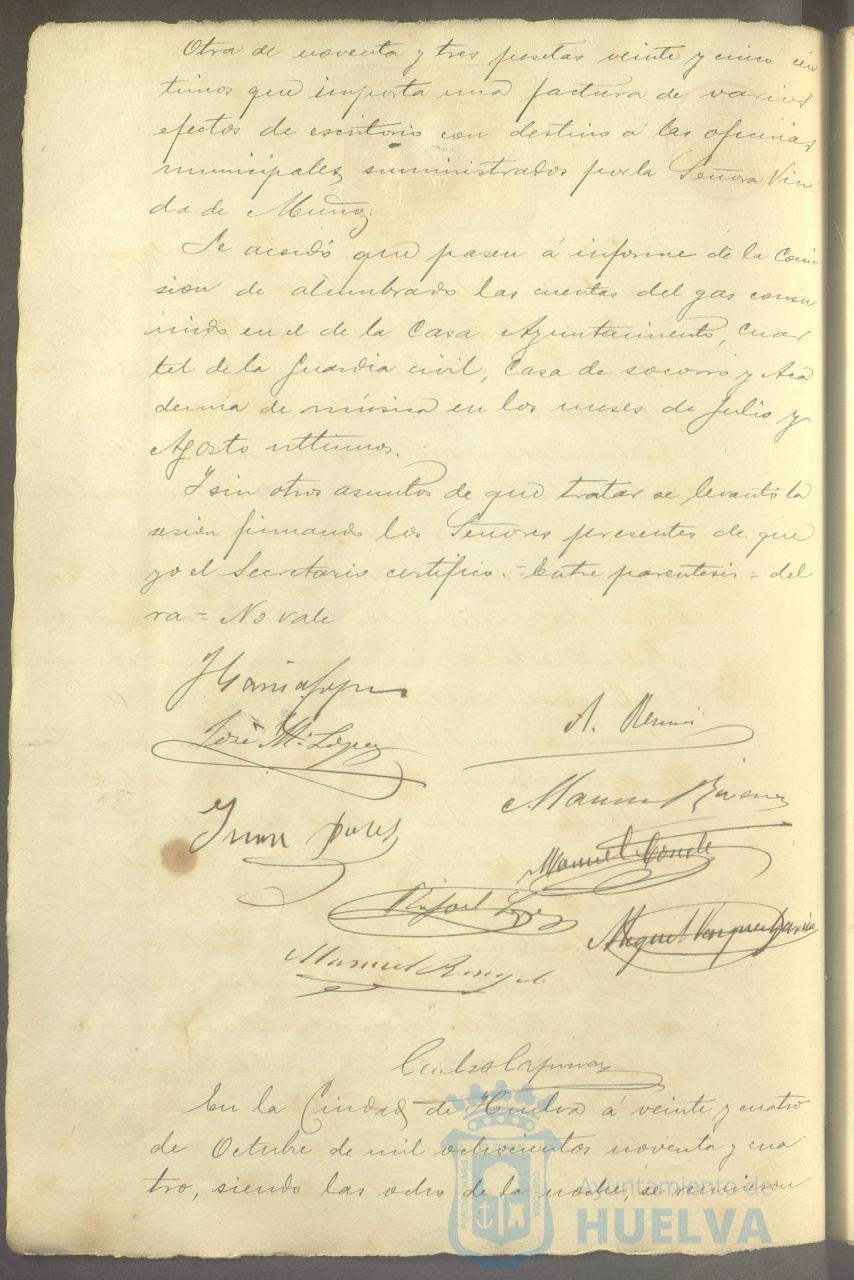 Otra de noventa y tres pesetas veinte y cinco cen
timos que importa una factura de varios
efectos de escritorio con destino á las oficinas
municipales suministrados por la Señora Viu
da de Muñoz.
Se acordó que pasen á informe de la Comi
sion de alumbrado las cuentas del gas consu
mido en el de la Casa Ayuntamiento, Cuar
tel de la Guardia civil, Casa de socorro y Aca
demia de música en los meses de Julio y
Agosto ultimos.
Y sin otros asuntos de que tratar se levantó la
sesión firmando los Señores presentes de que
yo el Secretario certifico. = Entre parentesis = del
ra = No vale
José Mª López
A.
Manuel
Juan
Manuel Conde
Rafael López
Miguel Vazquez Garcia
Manuel Rengel
En la Ciudad de Huelva á veinte y cuatro
de Octubre de mil ochocientos noventa y cua
tro, siendo las ocho de la noche, se reunieron
PORTUS MARIS ET TERRAE CUSTODIA
Ayuntamiento de
HUELVA